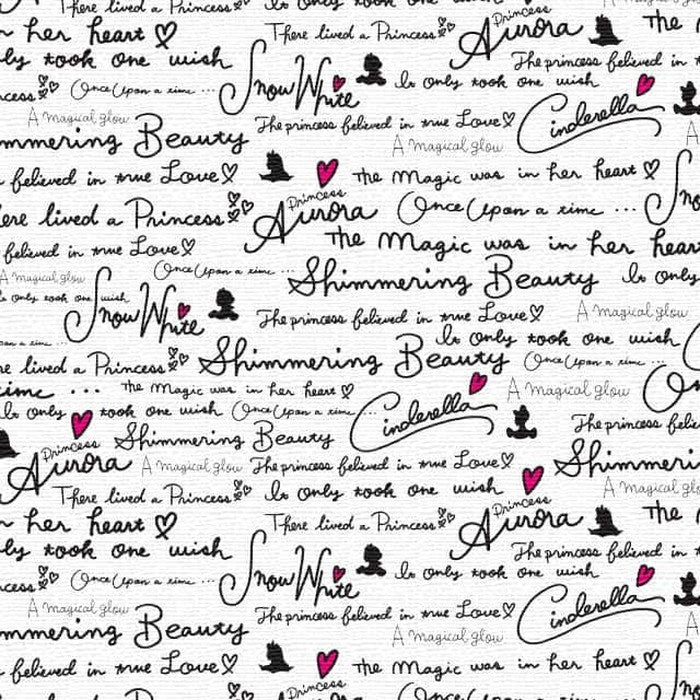 There lived a Princess It only took one wish Princess
her heart There lived a Princess Aurora The
ly took one wish The princess believed in
cess Once Upon a time ... Snow White It only took one wish
A magical glow The princess believed in true Love Cinderella
mmering Beauty A magical glow
believed in true Love The Magic was in her heart
ere lived a Princess Princess Aurora Once Upon a time ... Sno
believed in true Love The Magic was in her hear
A magical glow Once Upon a time ... Shimmering Beauty It only
only took one wish Snow White The princess believed in true Love A magical glow
on a time ... It only took one wish
re lived a Princess Shimmering Beauty Once Upon a time ...
time ... The Magic was in her heart A magical glow
It only took one wish Once Upon a time ... Cinderella
Princess Shimmering Beauty The princess belie
Aurora A magical glow The princess believed in true Love Shimmeri
There lived a Princess It only took one wish A magical glow
her heart There lived a Princess Princess Aurora The
ly took one wish The princess believed in
cess Once Upon a time ... Snow White It only took one wish
A magical glow The princess believed in true Love Cinderella
mmering Beauty A magical glow
believed in true Love The Magic was in her heart
ere lived a Princess Princess Once Upon a time ...